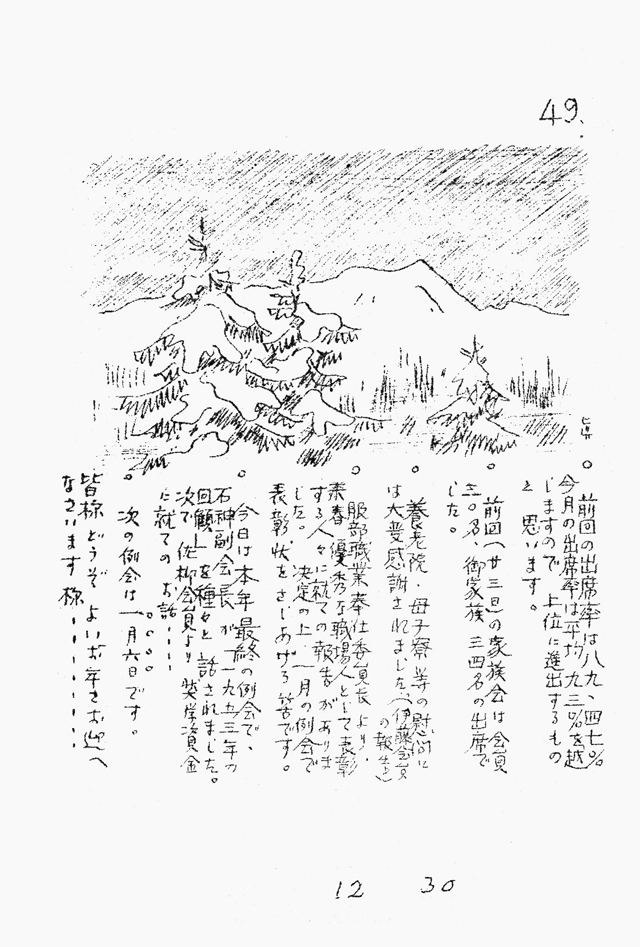 49.
○ 前回の出席率は八九、四七%
今月の出席率は平均九三%を越
しますので 上位に進出するもの
と 思います。
○ 前回(廿三日)の家族会は会員
三〇名 御家族 三四名の出席で
した。
○ 養老院・母子寮等の慰問に
は大変感謝されました(伊藤会員
の報告)
○ 服部職業奉仕委員長より、
来春優秀な職場人として表彰
する人々に就ての報告がありま
した。決定の上 一月の例会で
表彰状をさしあげる筈です。
○ 今日は本年最終の例会で、
石神副会長が「一九五三年の
回顧」を種々と話されました。
次で佐柳会員より奨学資金
に就ての お話‥‥
○ 次の例会は一月六日です。
皆様どうぞ よいお年をお迎へ
なさいます様‥‥‥‥‥
12 30